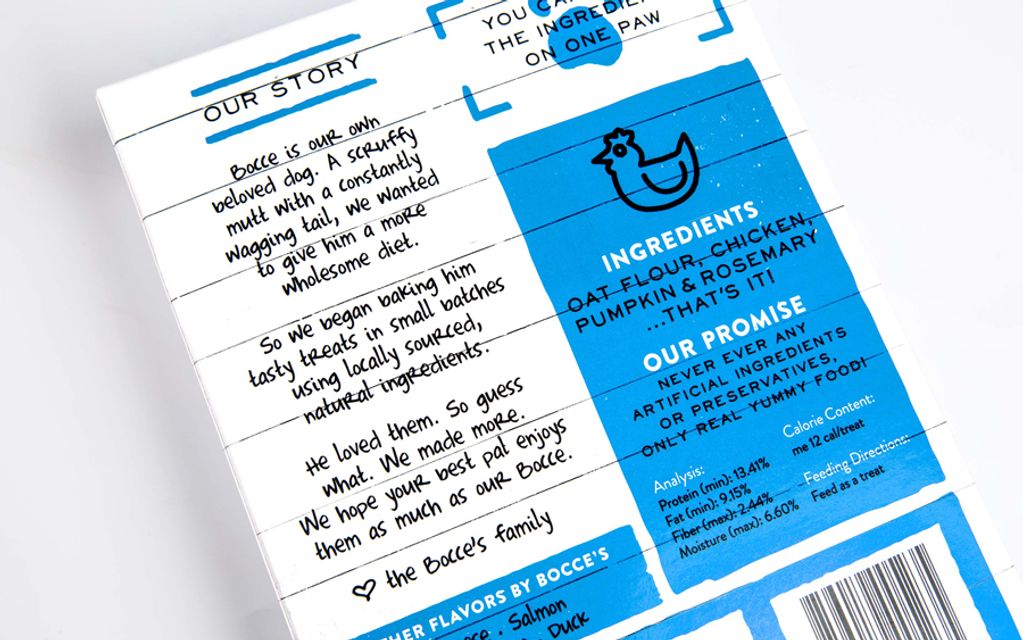 OUR STORY
Bocce is our own
beloved dog. A scruffy
mutt with a constantly
wagging tail, we wanted
to give him a more
wholesome diet.
So we began baking him
tasty treats in small batches
using locally sourced,
natural ingredients.
He loved them. So guess
what. We made more.
We hope your best pal enjoys
them as much as our Bocce.
the Bocce's family
FLAVORS BY BOCCE'S
Salmon
Duck
YOU
THE
ON ONE PAW
INGREDIENTS
OAT FLOUR, CHICKEN,
PUMPKIN & ROSEMARY
...THAT'S IT!
OUR PROMISE
NEVER EVER ANY
ARTIFICIAL INGREDIENTS
OR PRESERVATIVES,
ONLY REAL YUMMY FOOD!
Analysis:
Protein (min): 13.41%
Fat (min): 9.15%
Fiber (max): 2.44%
Moisture (max): 6.60%
Calorie Content:
me 12 cal/treat
Feeding Directions:
Feed as a treat